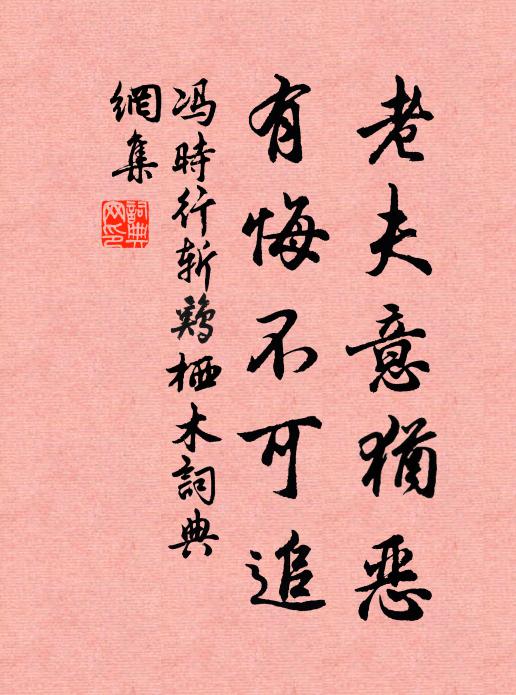 老夫意猶惡
有悔不可追
冯時行斬鷄栖木詞典
網集
詞典網印